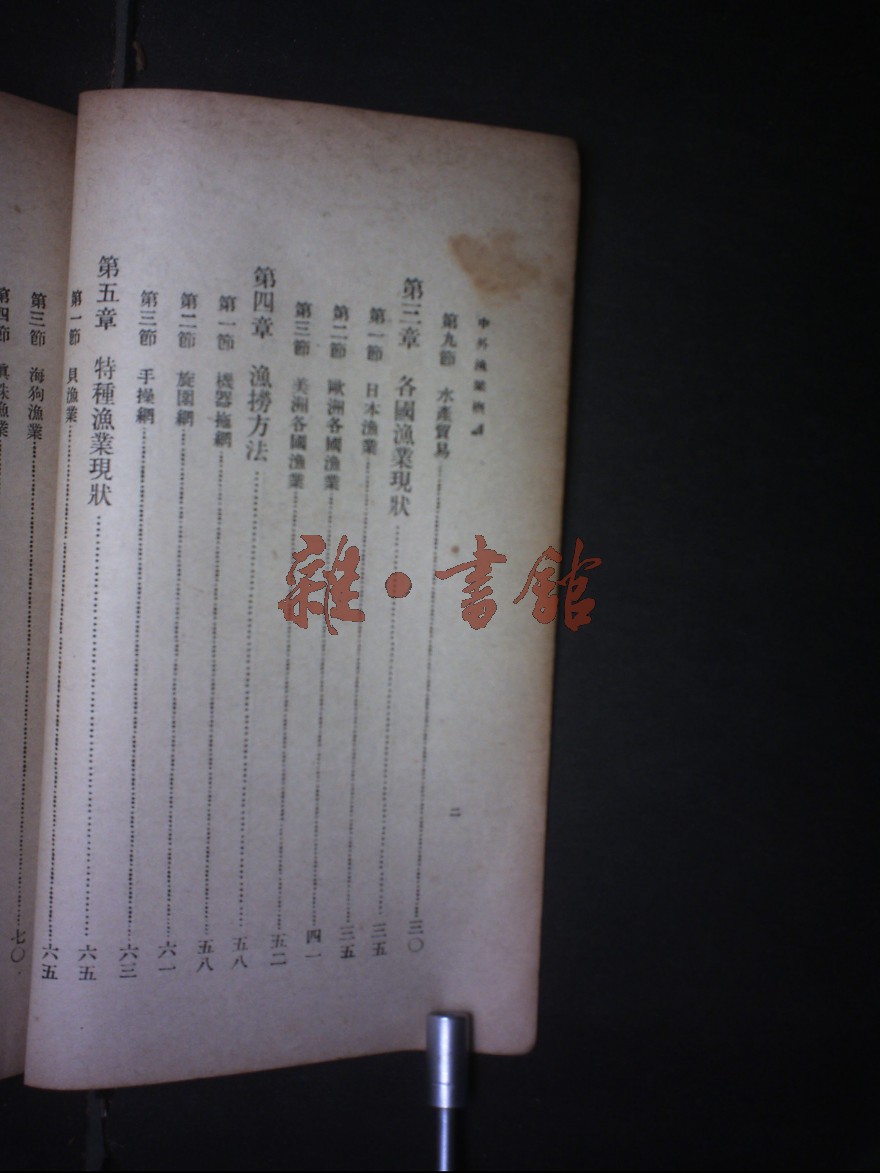 中外漁業概
二
第九節 水產貿易……三〇
第三章 各國漁業現狀……三五
第一節 日本漁業……三五
第二節 歐洲各國漁業……四一
第三節 美洲各國漁業……五二
第四章 漁撈方法……五八
第一節 機器拖網……五八
第二節 旋圍網……六一
第三節 手操網……六三
第五章 特種漁業現狀……六五
第一節 貝漁業……六五
第三節 海狗漁業……七〇
第四節 眞珠漁業
雜·書館